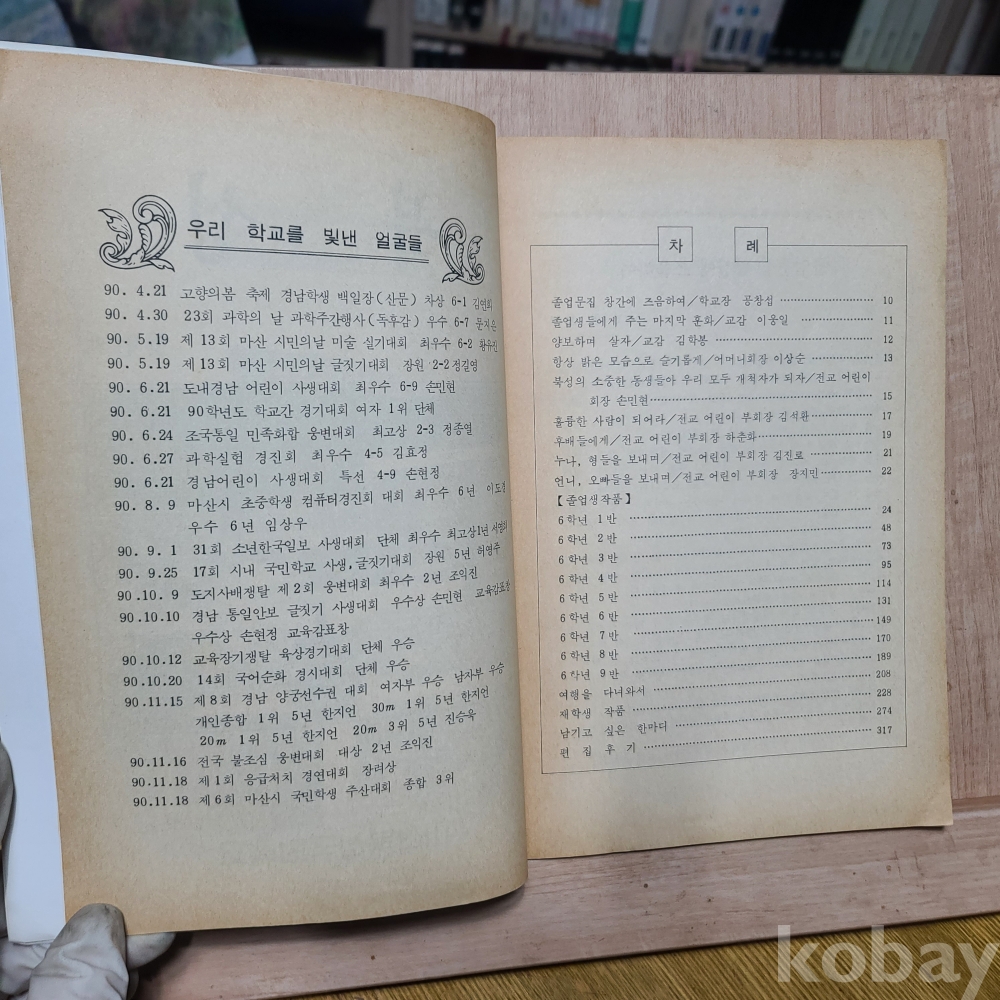 우리 학교를 빛낸 얼굴들
90. 4.21 고향의봄 축제 경남학생 백일장(산문) 차상 6-1 김연희
90. 4.30 23회 과학의 날 과학주간행사(독후감) 우수 6-7 문지은
90. 5.19 제 13회 마산 시민의날 미술 실기대회 최우수 6-2 황유진
90. 5.19 제 13회 마산 시민의날 글짓기대회 장원 2-2 정길영
90. 6.21 도내경남 어린이 사생대회 최우수 6-9 손민현
90. 6.21 90학년도 학교간 경기대회 여자 1위 단체
90. 6.24 조국통일 민족화합 웅변대회 최고상 2-3 정종열
90. 6.27 과학실험 경진회 최우수 4-5 김효정
90. 6.21 경남어린이 사생대회 특선 4-9 손현정
90. 8. 9 마산시 초중학생 컴퓨터경진회 대회 최우수 6년 이도경
우수 6년 임상우
90. 9. 1 31회 소년한국일보 사생대회 단체 최우수 최고상1년
90. 9.25 17회 시내 국민학교 사생,글짓기대회 장원 5년 허영주
90.10. 9 도지사배쟁탈 제2회 웅변대회 최우수 2년 조익진
90.10.10 경남 통일안보 글짓기 사생대회 우수상 손민현 교육감표창
우수상 손현정 교육감표창
90.10.12 교육장기쟁탈 육상경기대회 단체 우승
90.10.20 14회 국어순화 경시대회 단체 우승
90.11.15 제8회 경남 양궁선수권 대회 여자부 우승 남자부 우승
개인종합 1위 5년 한지언 30m 1위 5년 한지언
20m 1위 5년 한지언 20m 3위 5년 진승욱
90.11.16 전국 불조심 웅변대회 대상 2년 조익진
90.11.18 제1회 응급처치 경연대회 장려상
90.11.18 제6회 마산시 국민학생 주산대회 종합 3위
차 례
졸업문집 창간에 즈음하여/학교장 공창섭 10
졸업생들에게 주는 마지막 훈화/교감 이웅일 11
양보하며 살자/교감 김학봉 12
항상 밝은 모습으로 슬기롭게/어머니회장 이상순 13
북성의 소중한 동생들아 우리 모두 개척자가 되자/전교 어린이
회장 손민현 15
훌륭한 사람이 되어라/전교 어린이 부회장 김석환 17
후배들에게/전교 어린이 부회장 하춘화 19
누나, 형들을 보내며/전교 어린이 부회장 김진로 21
언니, 오빠들을 보내며/전교 어린이 부회장 장지민 22
【졸업생작품】
6학년 1반 24
6학년 2반 48
6학년 3반 73
6학년 4반 95
6학년 5반 114
6학년 6반 131
6학년 7반 149
6학년 8반 170
6학년 9반 189
여행을 다녀와서 208
재학생 작품 228
남기고 싶은 한마디 274
편 집 후 기 317
kobay